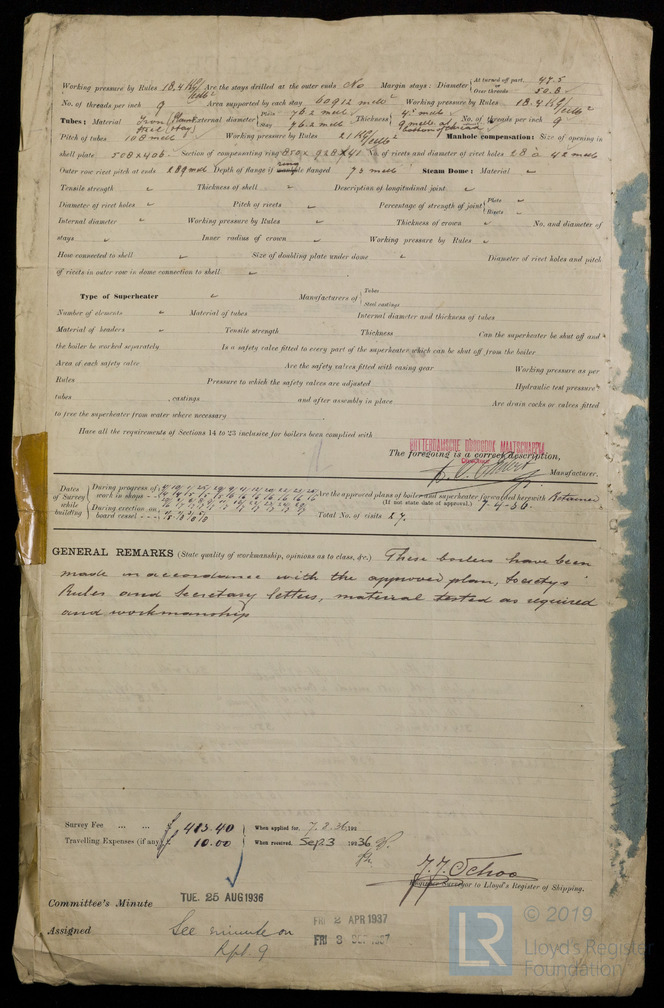 Working pressure by Rules 18.4 Kg/ Are the stays drilled at the outer ends No Margin stays: Diameter { At turned off part, 47.5 or Over threads 50.8
No. of threads per inch 9 Area supported by each stay 60912 Working pressure by Rules 18.4 Kg/
Tubes: Material Iron Steel External diameter { Plain 76.2 Stay 76.2 Thickness { 4 9 No. of threads per inch 9
Pitch of tubes 108 Working Pressure by Rules 21 Kg/ Manhole compensation: Size of opening in
shell plate 508 x 406 Section of compensating ring 850 x 928 x 41 No. of rivets and diameter of rivet holes 28 a 42
Outer row rivet pitch at ends 289 Depth of flange if flanged 93 Steam Dome: Material
Tensile strength Thickness of shell Description of longitudinal joint
Diameter of rivet holes Pitch of rivets Percentage of strength of joint { Plate Rivets
Internal diameter Working pressure by Rules Thickness of crown No. and diameter of
stays Inner radius of crown Working pressure by Rules
How connected to shell Size of doubling plate under dome Diameter of rivet holes and pitch
of rivets in outer row in dome connection to shell
Type of Superheater Manufacturers of { Tubes Steel castings
Number of elements Material of tubes Internal diameter and thickness of tubes
Material of headers Tensile strength Thickness Can the superheater be shut off and
the boiler be worked separately Is a safety valve fitted to every part of the superheater which can be shut off from the boiler
Area of each safety valve Are the safety valves fitted with easing gear Working pressure as per
Rules Pressure to which the safety valves are adjusted Hydraulic test pressure
tubes , castings and after assembly in place Are drain cocks or valves fitted
to free the superheater from water where necessary
Have all the requirements of Sections 14 to 23 inclusive for boilers been complied with
ROTTERDAMSCHE DROOGDOK MAATSCHAPPIJ
The foregoing is a correct description,
Manufacturer.
Dates of Survey while building { During progress of work in shops - - During erection on board vessel - - -
Are the approved plans of boiler and superheater forwarded herewith Retained
(If not state date of approval.) 7-4-36.
Total No. of visits 27.
GENERAL REMARKS (State quality of workmanship, opinions as to class, &c.) These boilers have been
made in accordance with the approved plan, Society's
Rules and Secretary letters, material tested as required
and workmanship
Survey Fee ... ... £ 413.40 When applied for, 7.8.36 19
Travelling Expenses (if any) £ 10.00 When received, Sep. 3 1936
J.J. Schoo
Surveyor to Lloyd's Register of Shipping.
Committee's Minute TUE. 25 AUG 1936
FRI 2 APR 1937
Assigned See minute on FRI 3 SEP 1937
Rpt. 9
© 2019
LR Lloyd's Register
Foundation